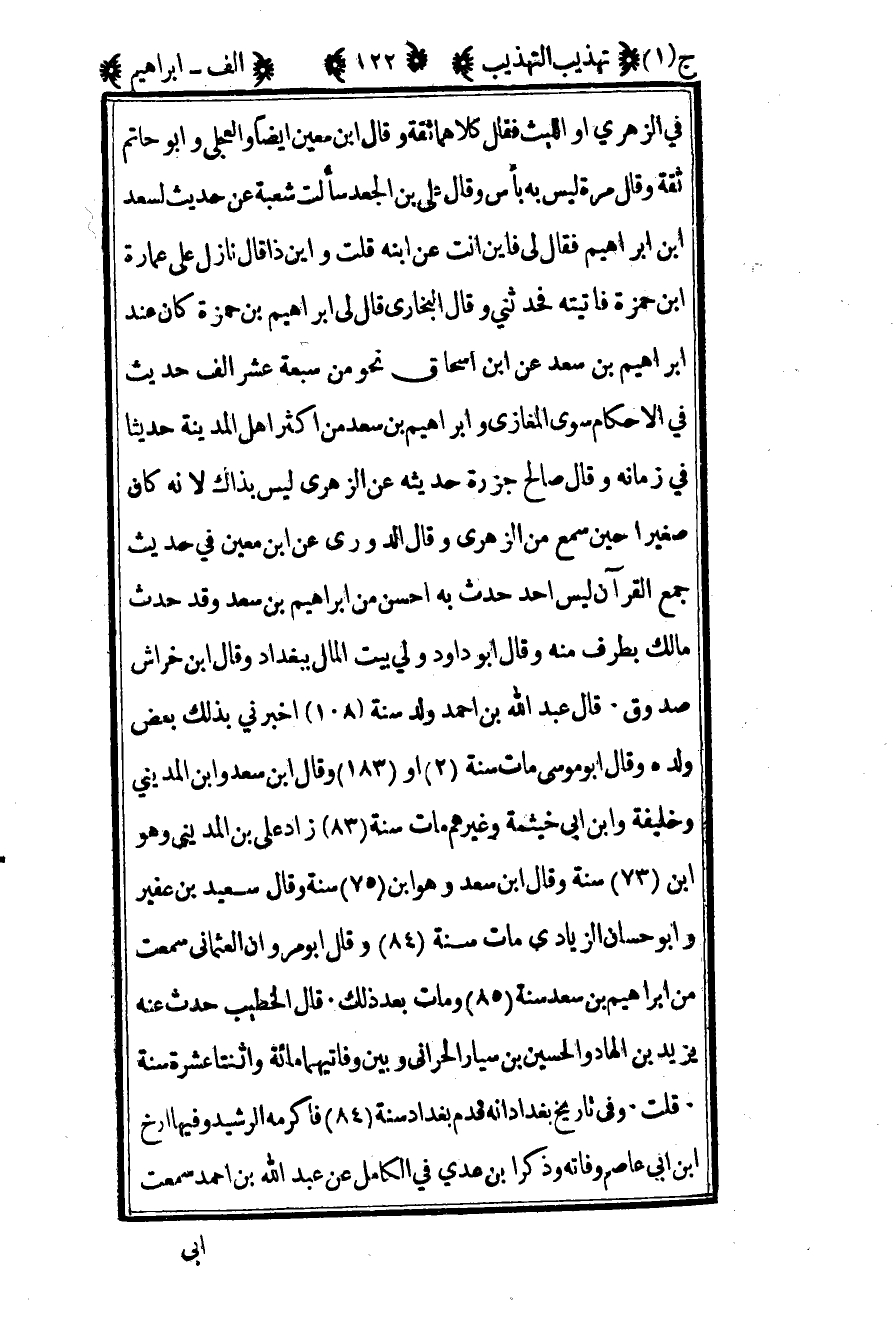 ج (١) تهذيب التهذيب ١٢٢ الف - ابراهيم
في الزهري او الليث فقال كلاهما ثقة وقال ابن معين ايضا والعجلي وابو حاتم
ثقة وقال مرة ليس به بأس وقال علي بن الجعد سألت شعبة عن حديث لسعد
ابن ابراهيم فقال لى فاين انت عن ابنه قلت واين ذا قال نازل على عمارة
ابن حمزة فاتيته فحدثني وقال البخارى قال لى ابراهيم بن حمزة كان عند
ابراهيم بن سعد عن ابن اسحاق نحو من سبعة عشر الف حديث
في الاحكام سوى المغازى وابراهيم بن سعد من اكثر اهل المدينة حديثا
في زمانه وقال صالح جزرة حديثه عن الزهرى ليس بذاك لانه كان
صغيرا حين سمع من الزهرى وقال الدورى عن ابن معين في حديث
جمع القرآن ليس احد حدث به احسن من ابراهيم بن سعد وقد حدث
مالك بطرف منه وقال ابو داود ولي بيت المال ببغداد وقال ابن خراش
صدوق · قال عبد الله بن احمد ولد سنة (١٠٨) اخبرني بذلك بعض
ولده وقال ابو موسى مات سنة (٢) او (١٨٣) وقال ابن سعد وابن المديني
وخليفة وابن ابى خيثمة وغيرهم مات سنة (٨٣) زاد على بن المدينى وهو
ابن (٧٣) سنة وقال ابن سعد وهو ابن (٧٥) سنة وقال سعيد بن عفير
وابو حسان الزيادي مات سنة (٨٤) وقال ابو مروان العثمانى سمعت
من ابراهيم بن سعد سنة (٨٥) ومات بعد ذلك · قال الخطيب حدث عنه
يزيد بن الهاد والحسين بن سيار الحرانى وبين وفاتيهما مائة واثنتا عشرة سنة
· قلت · وفى تاريخ بغداد انه قدم بغداد سنة (٨٤) فاكرمه الرشيد وفيها ارخ
ابن ابي عاصم وفاته وذكر ابن عدي في الكامل عن عبد الله بن احمد سمعت
ابى